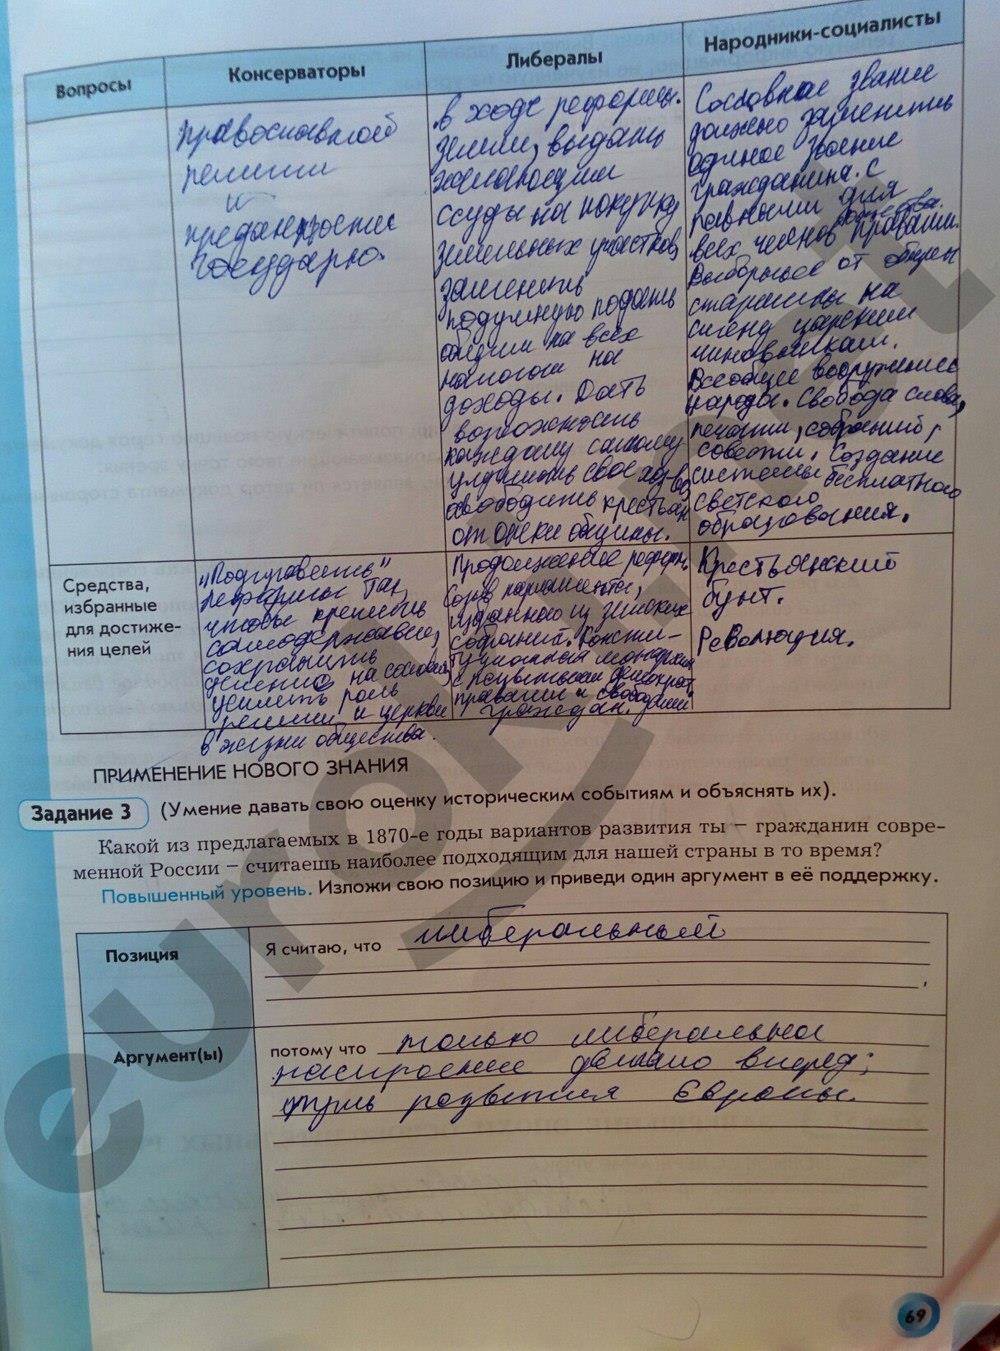 Вопросы
Консерваторы
Либералы
Народники-социалисты
православной
религии
и
преданности
государю.
в ходе реформы.
земли, выдать
желающим
ссуды на покупку
земельных участков,
заменить
подушную подать
общим на всех
налогом на
доходы. Дать
возможность
каждому самому
улучшить свое
освободить крестьян
от опеки общины.
Сословное звание
должно заменить
единое звание
гражданина с
равными для
всех членов общества правами.
Выборные от общин
старшины на
смену царским
чиновникам.
Всеобщее вооружение
народа. Свобода слова,
печати, собраний,
совести. Создание
системы бесплатного
светского
образования.
Средства,
избранные
для достиже-
ния целей
"Подправить"
реформы так,
чтобы укрепить
самодержавие,
сохранить
деление на
усилить роль
религии и церкви
в жизни общества.
Продолжение реформ
созыв парламента,
собраний. Консти-
туционная монархия
правами и свободами
граждан.
Крестьянский
бунт.
Революция.
ПРИМЕНЕНИЕ НОВОГО ЗНАНИЯ
Задание 3 (Умение давать свою оценку историческим событиям и объяснять их).
Какой из предлагаемых в 1870-е годы вариантов развития ты – гражданин совре-
менной России – считаешь наиболее подходящим для нашей страны в то время?
Повышенный уровень. Изложи свою позицию и приведи один аргумент в её поддержку.
Позиция
Я считаю, что либеральный
Аргумент(ы)
потому что только либеральное
настроение двигало вперед;
путь развития Европы.
69